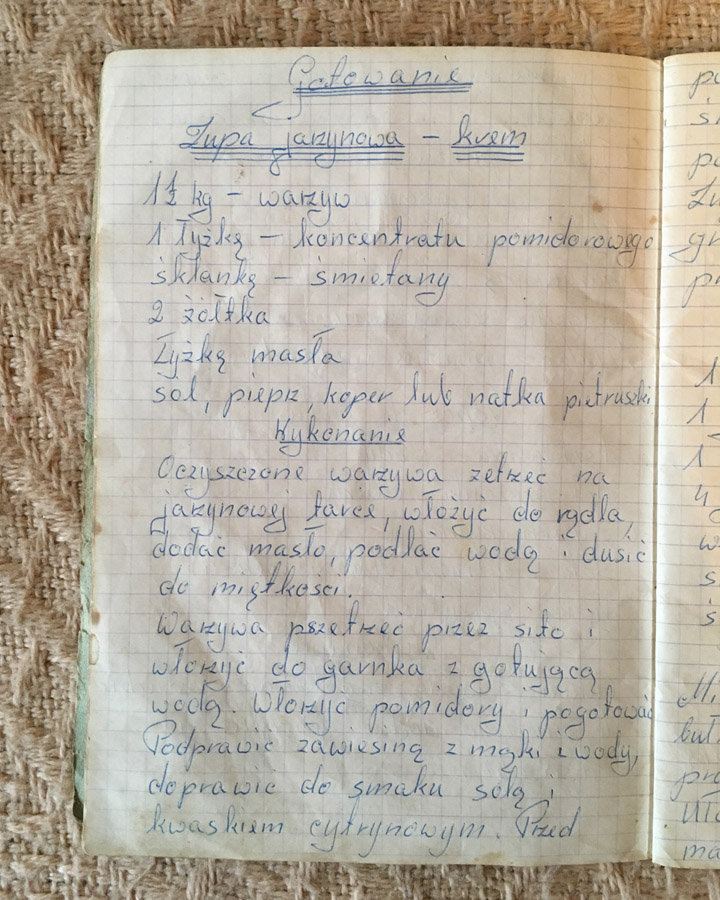 Gotowanie
Zupa jarzynowa – krem
1 1/2 kg – warzyw
1 łyżkę – koncentratu pomidorowego
szklankę – śmietany
2 żółtka
Łyżkę masła
sol, pieprz, koper lub natka pietruszki
Wykonanie
Oczyszczone warzywa zetrzeć na
jarzynowej tarce, włożyć do rądla,
dodać masło, podlać wodą i dusić
do miętkości.
Warzywa pszetrzeć przez sito i
włorzyć do garnka z gotującą
wodą. Włorzyć pomidory i pogotować
Podprawić zawiesiną z mąki i wody,
doprawić do smaku solą i
kwaskiem cytrynowym. Przed